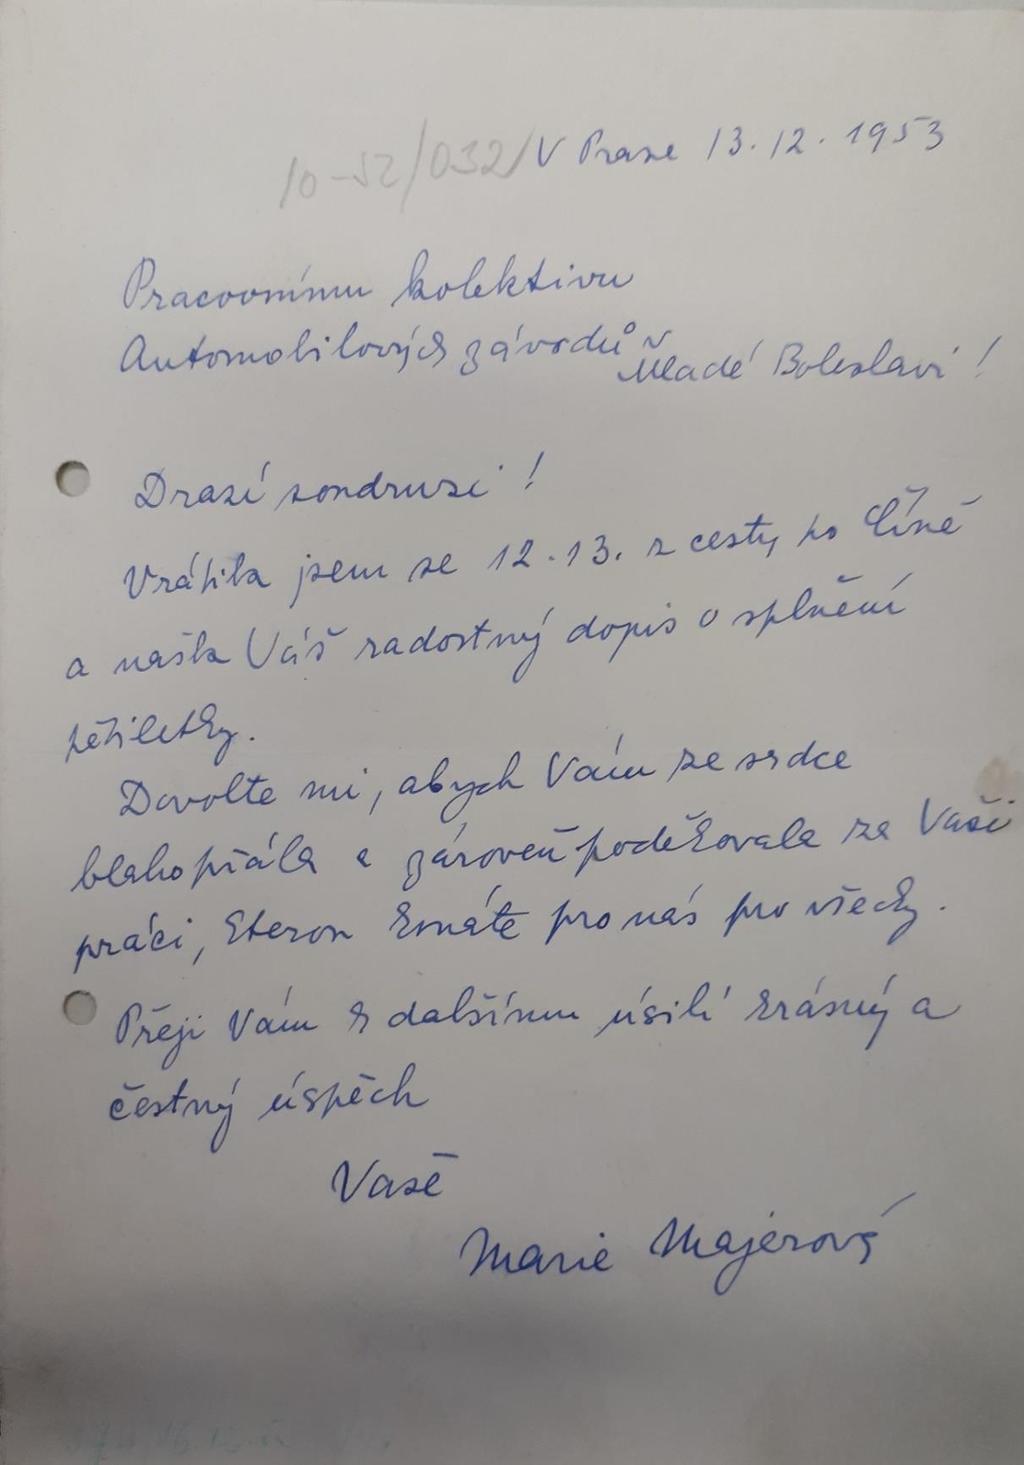 10-52/032/ V Praze 13.12.1953
Pracovnímu kolektivu
Automobilových závodů v
Mladé Boleslavi!
Drazí soudruzi!
Vrátila jsem se 12.13. z cesty po Číně
a našla Váš radostný dopis o splnění
pětiletky.
Dovolte mi, abych Vám ze srdce
blahopřála a zároveň poděkovala za Vaši
práci, kterou konáte pro nás pro všecky.
Přeji Vám k dalšímu úsilí krásný a
čestný úspěch
Vaše
Marie Majerová